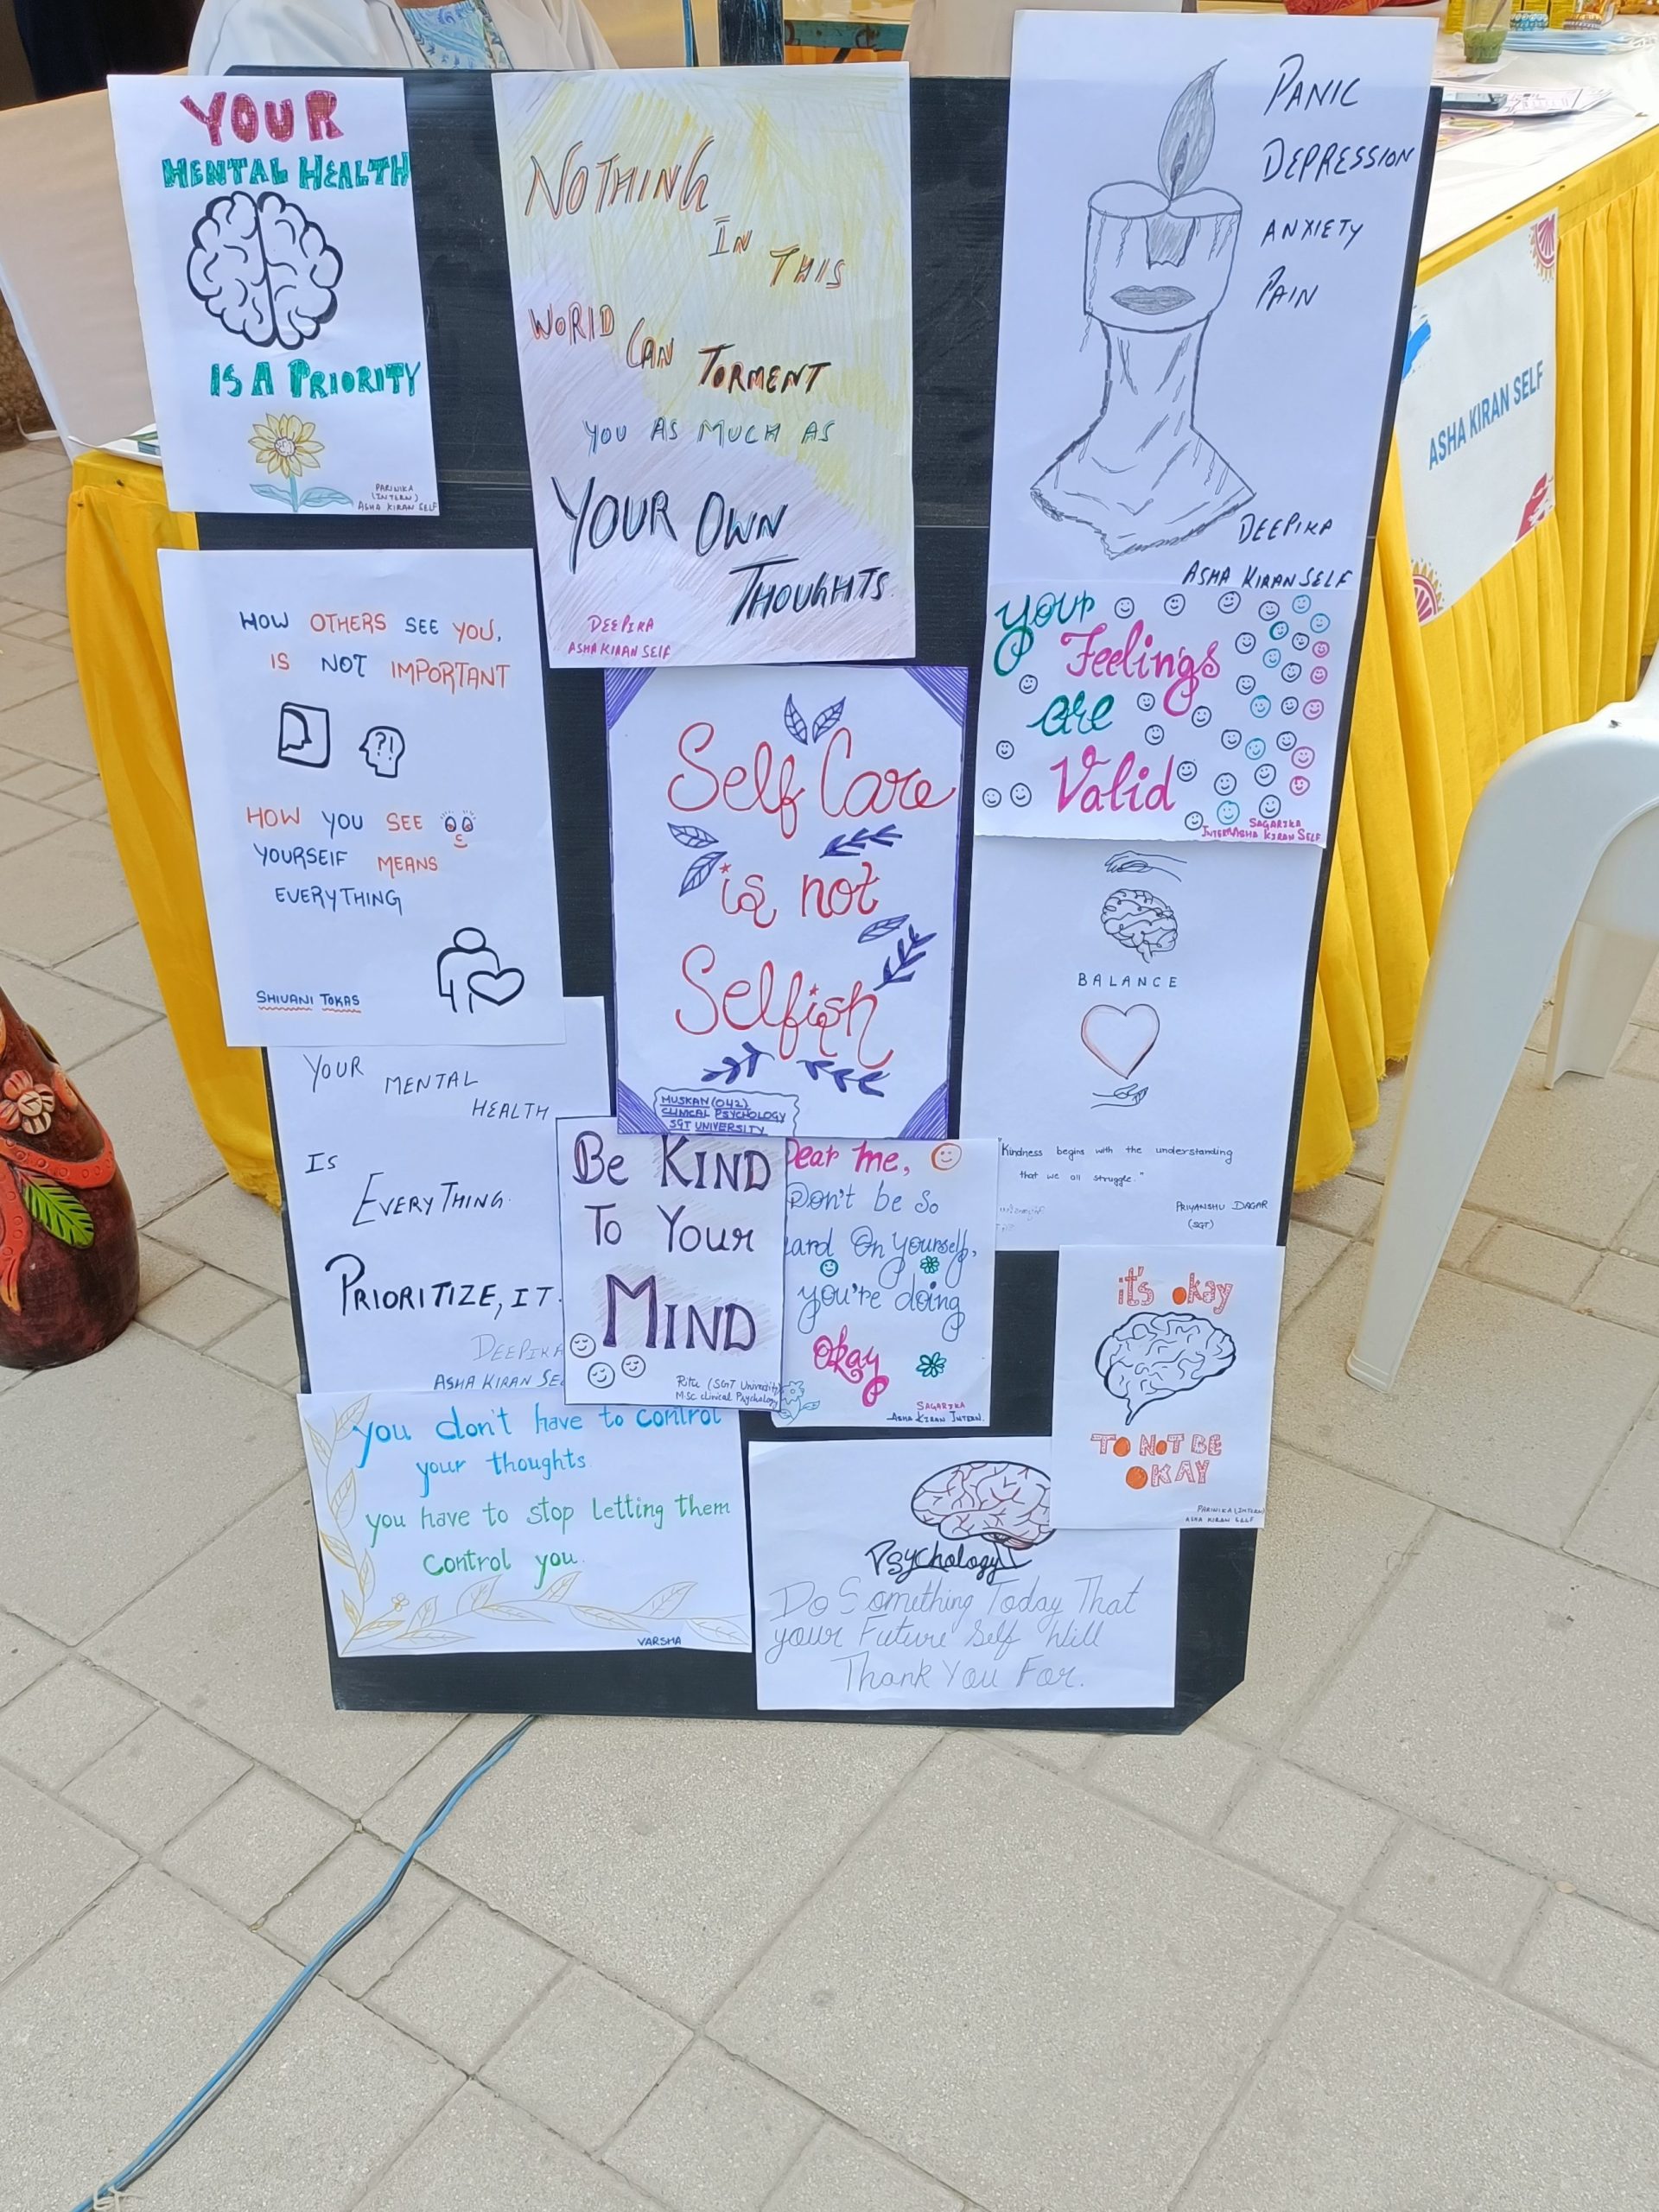 YOUR
MENTAL HEALTH
IS A PRIORITY
PARINIKA
(INTERN)
ASHA KIRAN SELF
NOTHING
IN THIS
WORLD CAN TORMENT
YOU AS MUCH AS
YOUR OWN
THOUGHTS.
DEEPIKA
ASHA KIRAN SELF
PANIC
DEPRESSION
ANXIETY
PAIN
DEEPIKA
ASHA KIRAN SELF
ASHA KIRAN SELF
HOW OTHERS SEE YOU,
IS NOT IMPORTANT
?!
HOW YOU SEE
YOURSELF MEANS
EVERYTHING
SHIVANI TOKAS
Self Care
is not
Selfish
MUSKAN (042)
CLINICAL PSYCHOLOGY
SGT UNIVERSITY
Your
Feelings
are
Valid
SAGARIKA
INTERN ASHA KIRAN SELF
BALANCE
Kindness begins with the understanding
that we all struggle."
PRIYANSHU DAGAR
(SGT)
YOUR MENTAL
HEALTH
IS
EVERYTHING.
PRIORITIZE, IT.
DEEPIKA
ASHA KIRAN SE
Be KIND
To Your
MIND
Ritu (SGT University)
M.Sc clinical Psychology
Dear me,
Don't be so
ard On yourself,
you're doing
Okay
SAGARIKA
ASHA KIRAN INTERN.
it's okay
TO NOT BE
OKAY
PARINIKA (INTERN)
ASHA KIRAN SELF
you don't have to control
your thoughts.
you have to stop letting them
Control you.
VARSHA
Psychology
Do Something Today That
your Future Self Will
Thank You For.